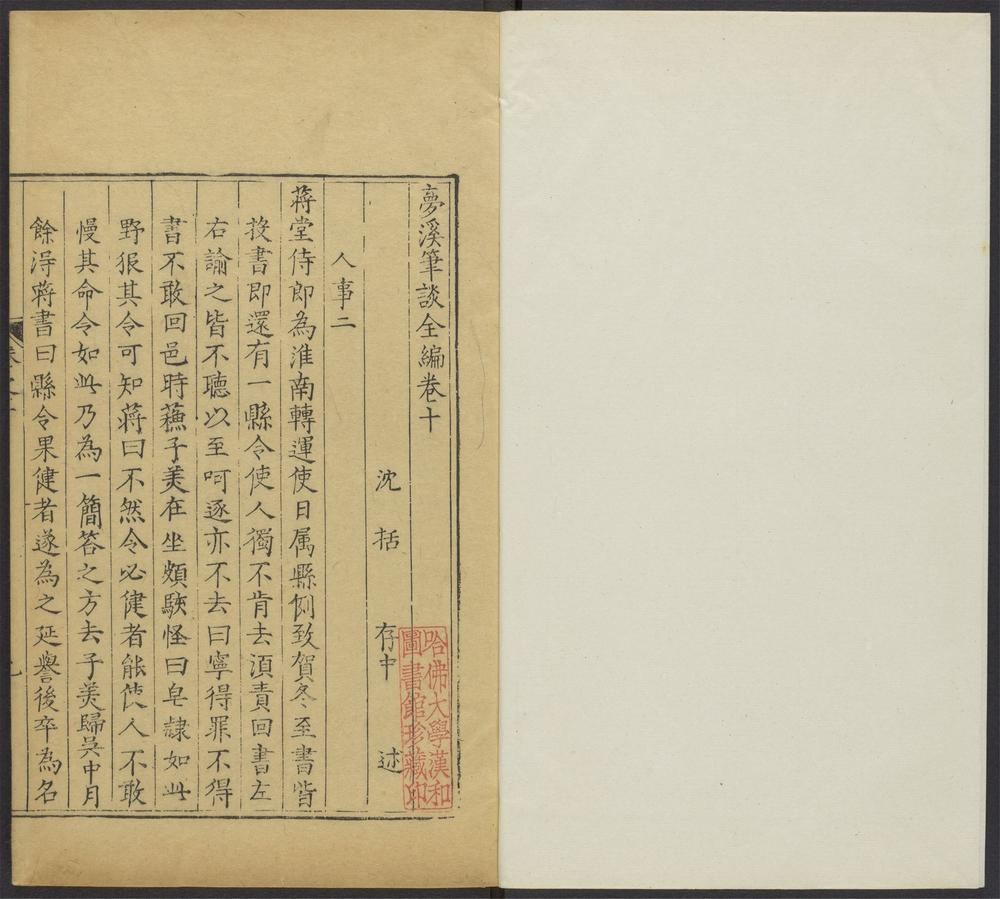 夢溪筆談全編卷十
沈括 存中 述
人事二
蔣堂侍郎為淮南轉運使日属縣例致賀冬至書皆
投書即還有一縣令使人獨不肯去湏責回書左
右諭之皆不聽以至呵逐亦不去曰寧得罪不得
書不敢回邑時蘓子美在坐頗駭怪曰皂隷如此
野狠其令可知蔣曰不然令必健者能使人不敢
慢其命令如此乃為一簡答之方去子美歸吳中月
餘得蔣書曰縣令果健者遂為之延譽後卒為名
哈佛大學漢和
圖書館珍藏印